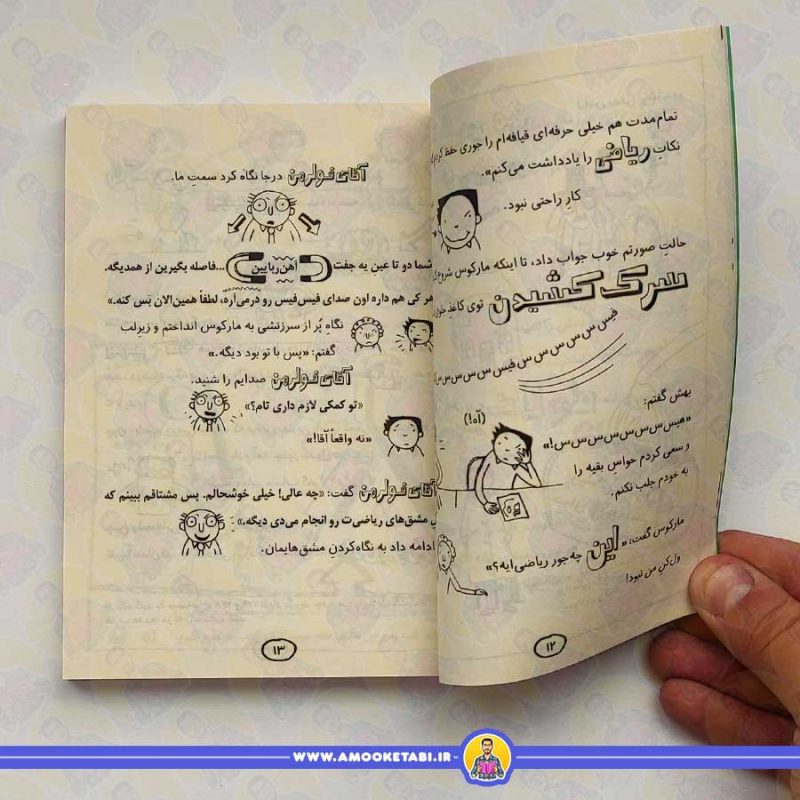 تمام‌مدت هم خیلی حرفه‌ای قیافه‌ام را جوری حفظ
نکاتِ ریاضی را یادداشت می‌کنم».
کارِ راحتی نبود.
حالتِ صورتم خوب جواب داد، تا اینکه مارکوس شروع
سرک کشیدن توی کاغذ
فیس س س س س س فیس س س س س س
بهش گفتم:
«هیس‌س‌س‌س‌س‌س‌س‌س!»
(آه!)
و سعی کردم حواسِ بقیه را
به خودم جلب نکنم.
مارکوس گفت: «این چه‌جور ریاضی‌ایه؟»
ول‌کنِ من نبود!
۱۲
آقای فولرمن درجا نگاه کرد سمتِ ما.
شما دو تا عینِ یه جفت آهن‌ربایین ...فاصله بگیرین از همدیگه.
هر کی هم داره اون صدای فیس‌فیس رو درمی‌آره، لطفاً همین‌الان بَس کنه.»
نگاهِ پُر از سرزنشی به مارکوس انداختم و زیرِلب
گفتم: «پس با تو بود دیگه.»
آقای فولرمن صدایم را شنید.
«تو کمکی لازم داری تام؟»
«نه واقعاً آقا!»
آقای فولرمن گفت: «چه عالی! خیلی خوشحالم. پس مشتاقم ببینم که
مشق‌های ریاضی‌ت رو انجام می‌دی دیگه.»
ادامه داد به نگاه‌کردنِ مشق‌هایمان.
۱۳
WWW.AMOOKETABI.IR